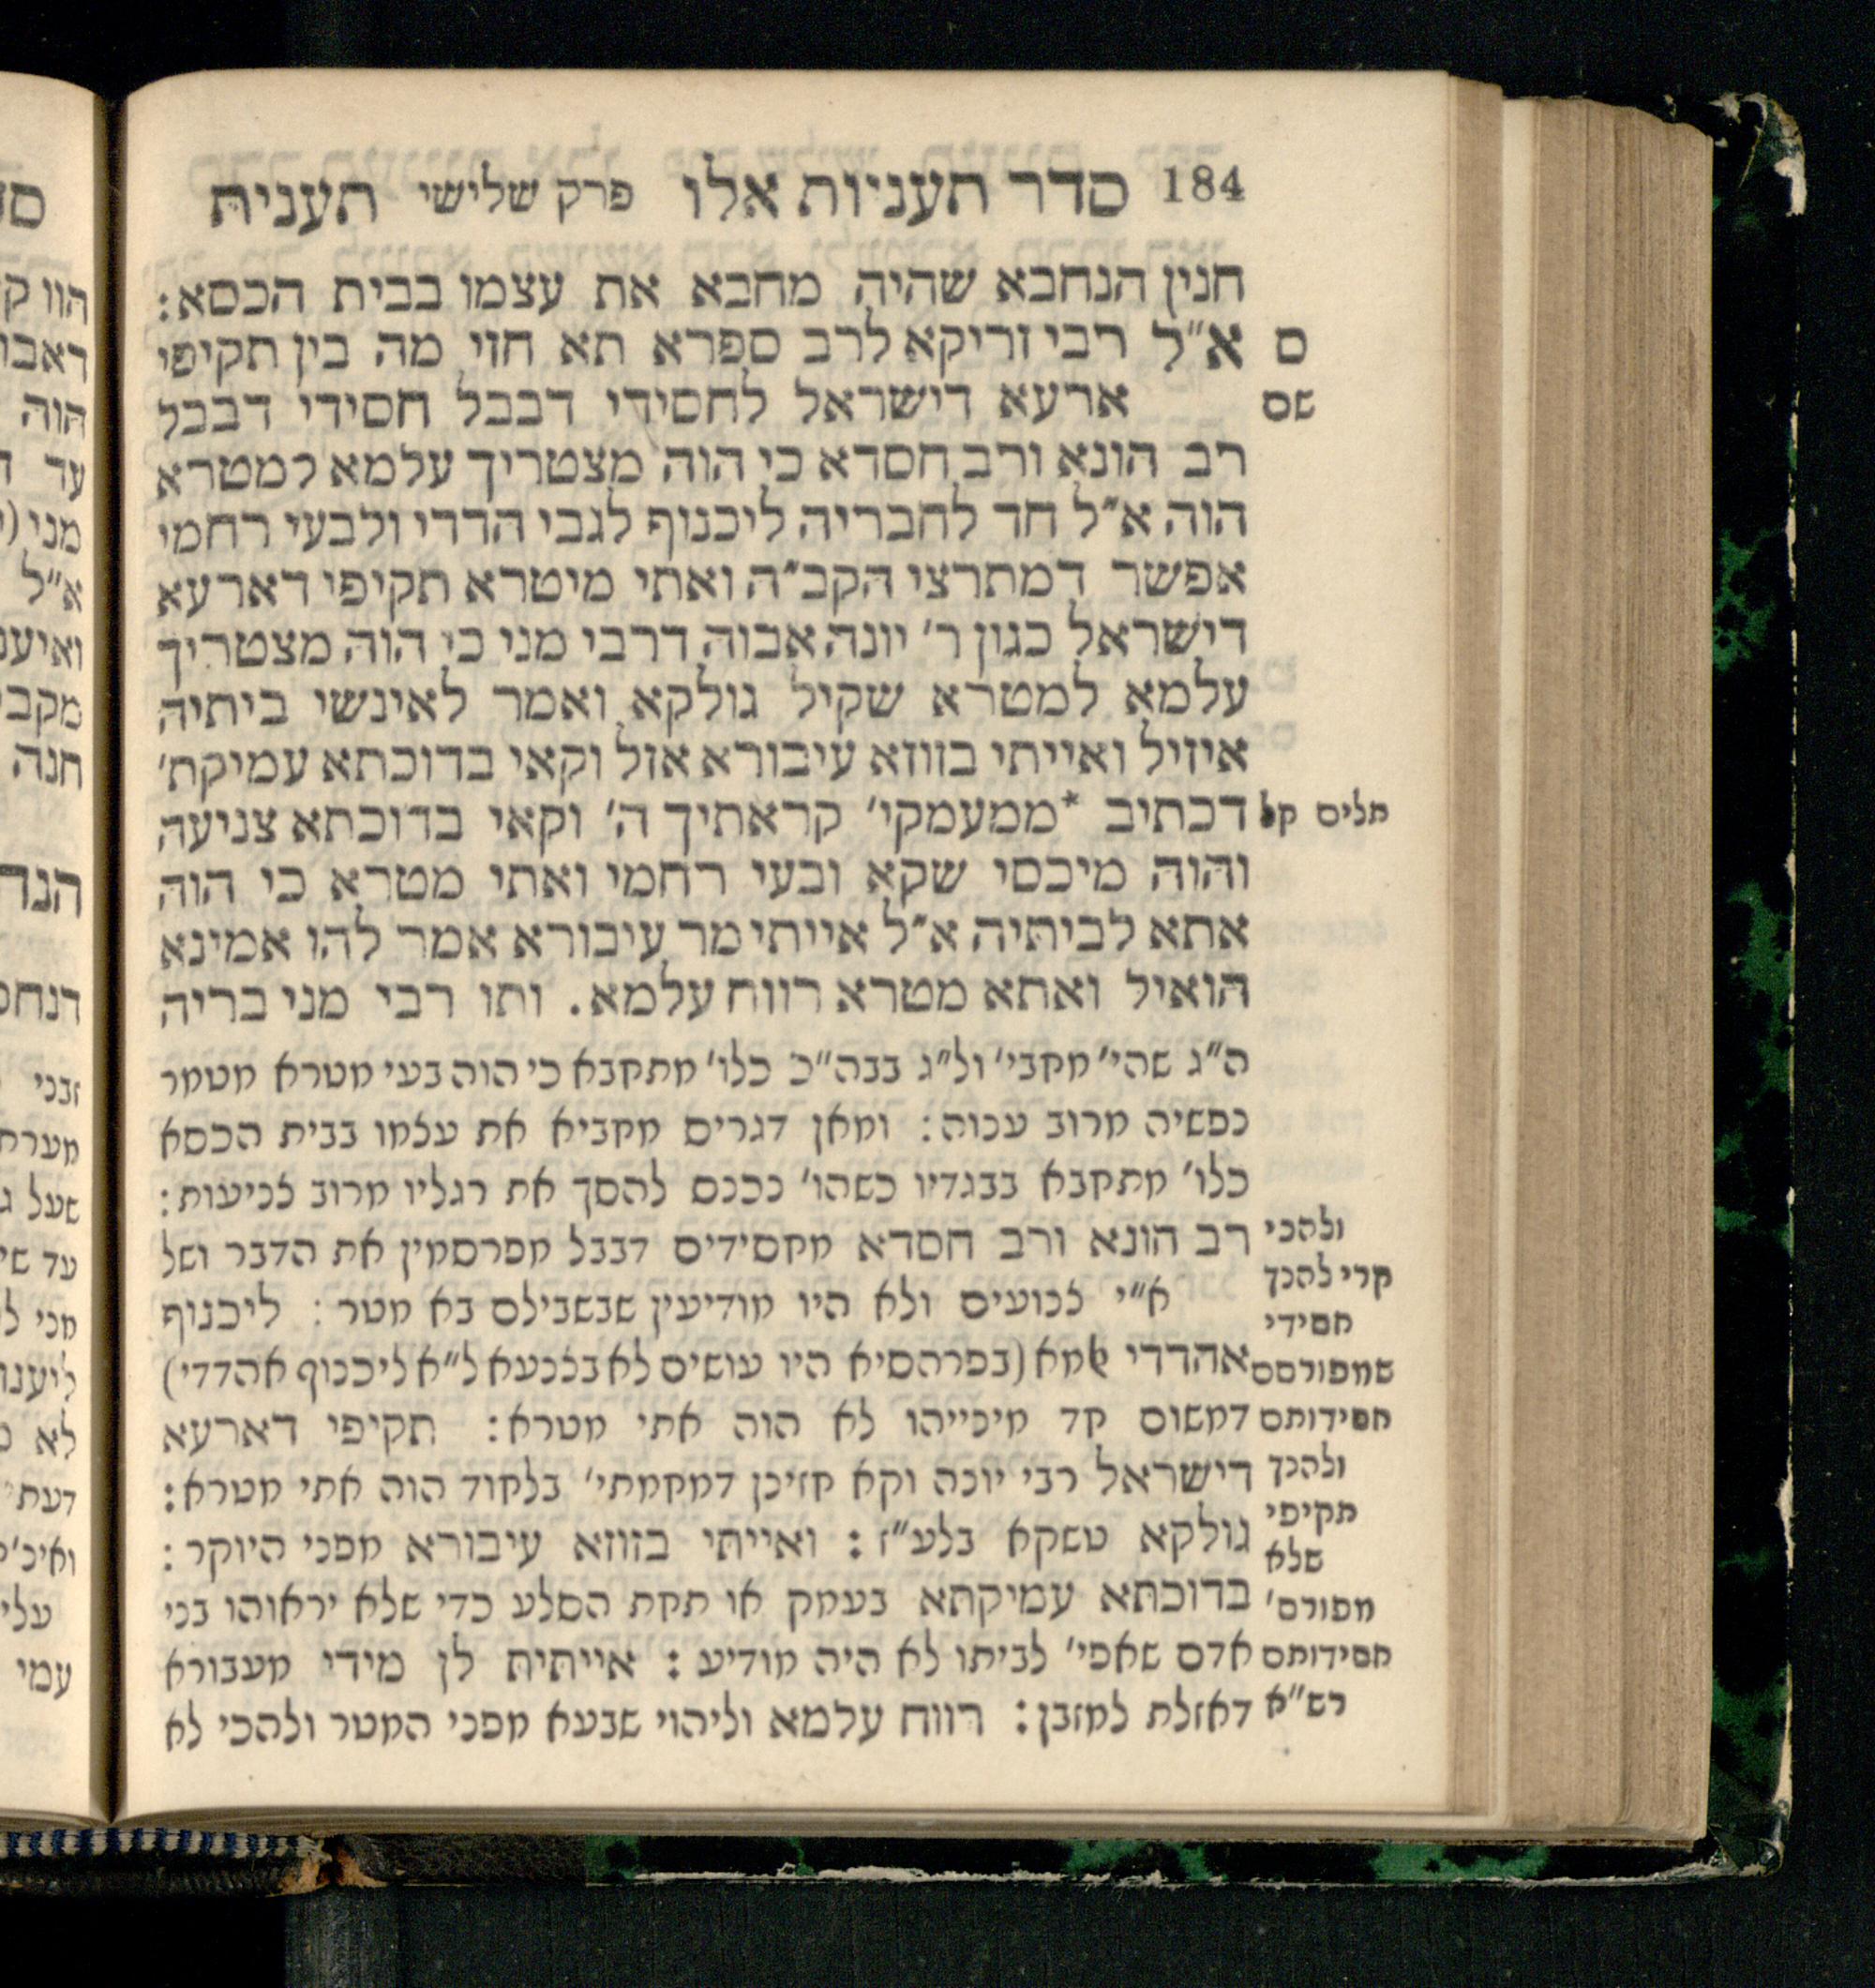 184 סדר תעניות אלו פרק שלישי תענית
חנין הנחבא שהיה מחבא את עצמו בבית הכסא:
ס א״ל רבי זריקא לרב ספרא תא חזי מה בין תקיפי
שס ארעא דישראל לחסידי דבבל חסידי דבבל
רב הונא ורב חסדא כי הוה מצטריך עלמא למטרא
הוה א״ל חד לחבריה ליכנוף לגבי הדדי ולבעי רחמי
אפשר דמתרצי הקב״ה ואתי מיטרא תקיפי דארעא
דישראל כגון ר׳ יונה אבוה דרבי מני כי הוה מצטריך
עלמא למטרא שקיל גולקא ואמר לאינשי ביתיה
איזיל ואייתי בזוזא עיבורא אזל וקאי בדוכתא עמיקת׳
תלים קל דכתיב *ממעמקי׳ קראתיך ה׳ וקאי בדוכתא צניעה
והוה מיכסי שקא ובעי רחמי ואתי מטרא כי הוה
אתא לביתיה א״ל אייתי מר עיבורא אמר להו אמינא
הואיל ואתא מטרא רווח עלמא. ותו רבי מני בריה
ה״ג שהי׳ מחבי׳ ול״ג בבה״כ כלו׳ מתחבא כי הוה בעי מטרא מטמר
נפשיה מרוב ענוה: ומאן דגרים מחביא את עצמו בבית הכסא
כלו׳ מתחבא בבגדיו כשהו׳ נכנס להסך את רגליו מרוב צניעות:
ולהכי רב הונא ורב חסדא מחסידים דבבל מפרסמין את הדבר ושל
קרי להנך
חסידי א״י צנועים ולא היו מודיעין שבשבילם בא מטר: ליכנוף
שמפורסם אהדדי אמא (בפרהסיא היו עושים לא בצנעא ל״א ליכנוף אהדדי)
חסידותם דמשום חד מינייהו לא הוה אתי מטרא: תקיפי דארעא
ולהנך דישראל רבי יונה וקא חזינן דמחמתי׳ בלחוד הוה אתי מטרא:
תקיפי
שלא גולקא טשקא בלע״ז: ואייתי בזוזא עיבורא מפני היוקר:
מפורס׳ בדוכתא עמיקתא בעמק או תחת הסלע כדי שלא יראוהו בני
חסידותם אדם שאפי׳ לביתו לא היה מודיע: אייתית לן מידי מעבורא
רש״א דאזלת למזבן: רווח עלמא וליהוי שבעא מפני המטר ולהכי לא